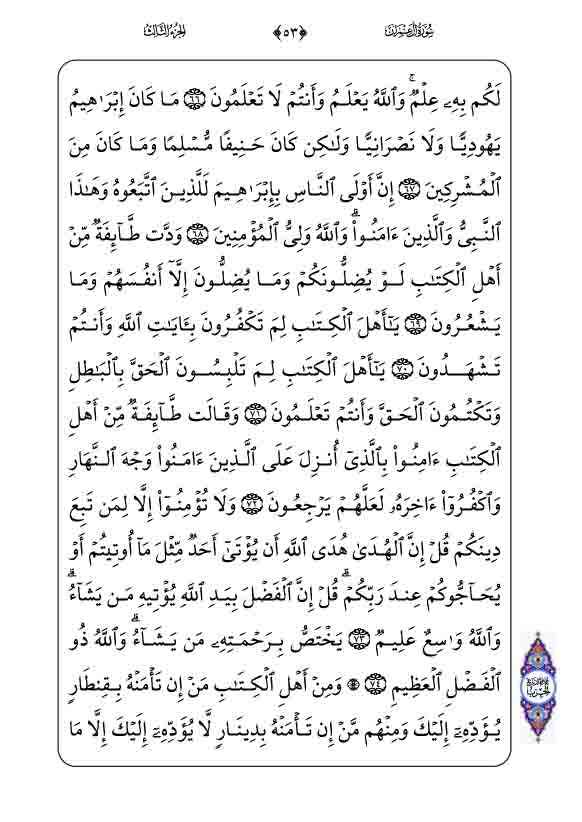 سُورَةُ آلِ عِمْرَانَ ﴿٥٣﴾ الجُزءُ الثَّالِث
لَكُم بِهِۦ عِلۡمٞۚ وَٱللَّهُ يَعۡلَمُ وَأَنتُمۡ لَا تَعۡلَمُونَ ٦٦ مَا كَانَ إِبۡرَٰهِيمُ
يَهُودِيّٗا وَلَا نَصۡرَانِيّٗا وَلَٰكِن كَانَ حَنِيفٗا مُّسۡلِمٗا وَمَا كَانَ مِنَ
ٱلۡمُشۡرِكِينَ ٦٧ إِنَّ أَوۡلَى ٱلنَّاسِ بِإِبۡرَٰهِيمَ لَلَّذِينَ ٱتَّبَعُوهُ وَهَٰذَا
ٱلنَّبِيُّ وَٱلَّذِينَ ءَامَنُواْۗ وَٱللَّهُ وَلِيُّ ٱلۡمُؤۡمِنِينَ ٦٨ وَدَّت طَّآئِفَةٞ مِّنۡ
أَهۡلِ ٱلۡكِتَٰبِ لَوۡ يُضِلُّونَكُمۡ وَمَا يُضِلُّونَ إِلَّآ أَنفُسَهُمۡ وَمَا
يَشۡعُرُونَ ٦٩ يَٰٓأَهۡلَ ٱلۡكِتَٰبِ لِمَ تَكۡفُرُونَ بِـَٔايَٰتِ ٱللَّهِ وَأَنتُمۡ
تَشۡهَدُونَ ٧٠ يَٰٓأَهۡلَ ٱلۡكِتَٰبِ لِمَ تَلۡبِسُونَ ٱلۡحَقَّ بِٱلۡبَٰطِلِ
وَتَكۡتُمُونَ ٱلۡحَقَّ وَأَنتُمۡ تَعۡلَمُونَ ٧١ وَقَالَت طَّآئِفَةٞ مِّنۡ أَهۡلِ
ٱلۡكِتَٰبِ ءَامِنُواْ بِٱلَّذِيٓ أُنزِلَ عَلَى ٱلَّذِينَ ءَامَنُواْ وَجۡهَ ٱلنَّهَارِ
وَٱكۡفُرُوٓاْ ءَاخِرَهُۥ لَعَلَّهُمۡ يَرۡجِعُونَ ٧٢ وَلَا تُؤۡمِنُوٓاْ إِلَّا لِمَن تَبِعَ
دِينَكُمۡ قُلۡ إِنَّ ٱلۡهُدَىٰ هُدَى ٱللَّهِ أَن يُؤۡتَىٰٓ أَحَدٞ مِّثۡلَ مَآ أُوتِيتُمۡ أَوۡ
يُحَآجُّوكُمۡ عِندَ رَبِّكُمۡۗ قُلۡ إِنَّ ٱلۡفَضۡلَ بِيَدِ ٱللَّهِ يُؤۡتِيهِ مَن يَشَآءُۗ
وَٱللَّهُ وَٰسِعٌ عَلِيمٞ ٧٣ يَخۡتَصُّ بِرَحۡمَتِهِۦ مَن يَشَآءُۗ وَٱللَّهُ ذُو
ٱلۡفَضۡلِ ٱلۡعَظِيمِ ٧٤ ۞ وَمِنۡ أَهۡلِ ٱلۡكِتَٰبِ مَنۡ إِن تَأۡمَنۡهُ بِقِنطَارٖ
يُؤَدِّهِۦٓ إِلَيۡكَ وَمِنۡهُم مَّنۡ إِن تَأۡمَنۡهُ بِدِينَارٖ لَّا يُؤَدِّهِۦٓ إِلَيۡكَ إِلَّا مَا